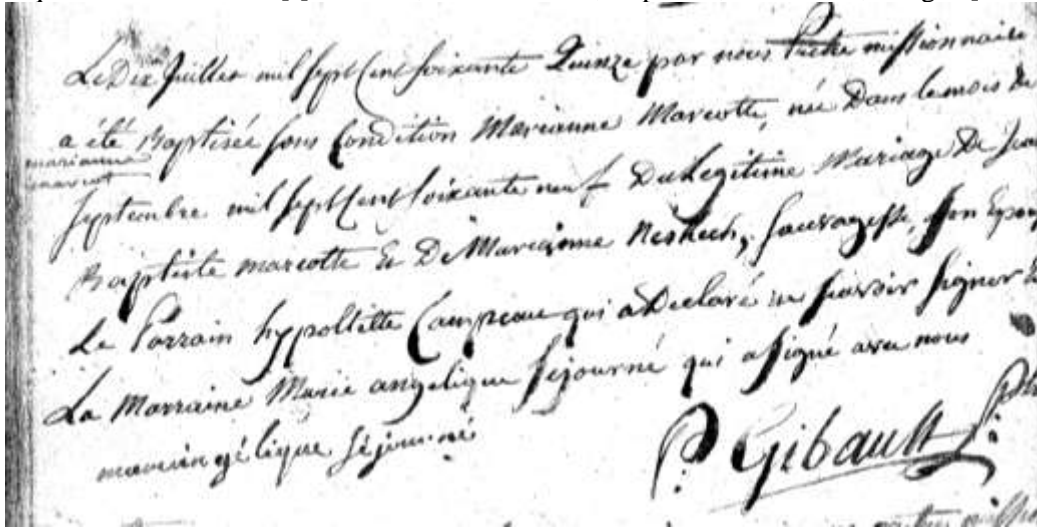 Le Dix Juillet mil sept Cent soixante Quinze par nous Pretre missionnaire
a été Baptisée sous Condition Marianne Marcotte, née Dans le mois de
marianne
marcot
Septembre mil sept Cent soixante neuf Du Legitime Mariage De Jean
Baptiste marcotte & De Marianne Neskech, sauvagesse, son Epouse
Le Parrain hyppolitte Campeau qui a Declaré ne savoir signer &
La Marraine Marie angelique sejourné qui a signé avec nous
marie angélique séjourné
P. Gibault Ptre